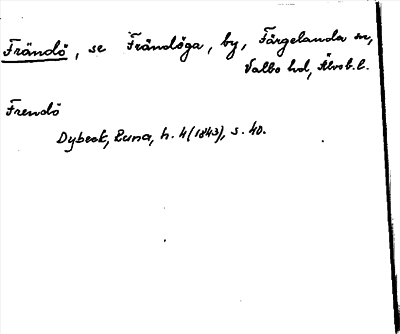 Frändö, se Frändöga, by, Färgelanda sn,
Valbo hd, Älvsb. l.
Frendö
Dybeck, Runa, h. 4 (1843), s. 40.